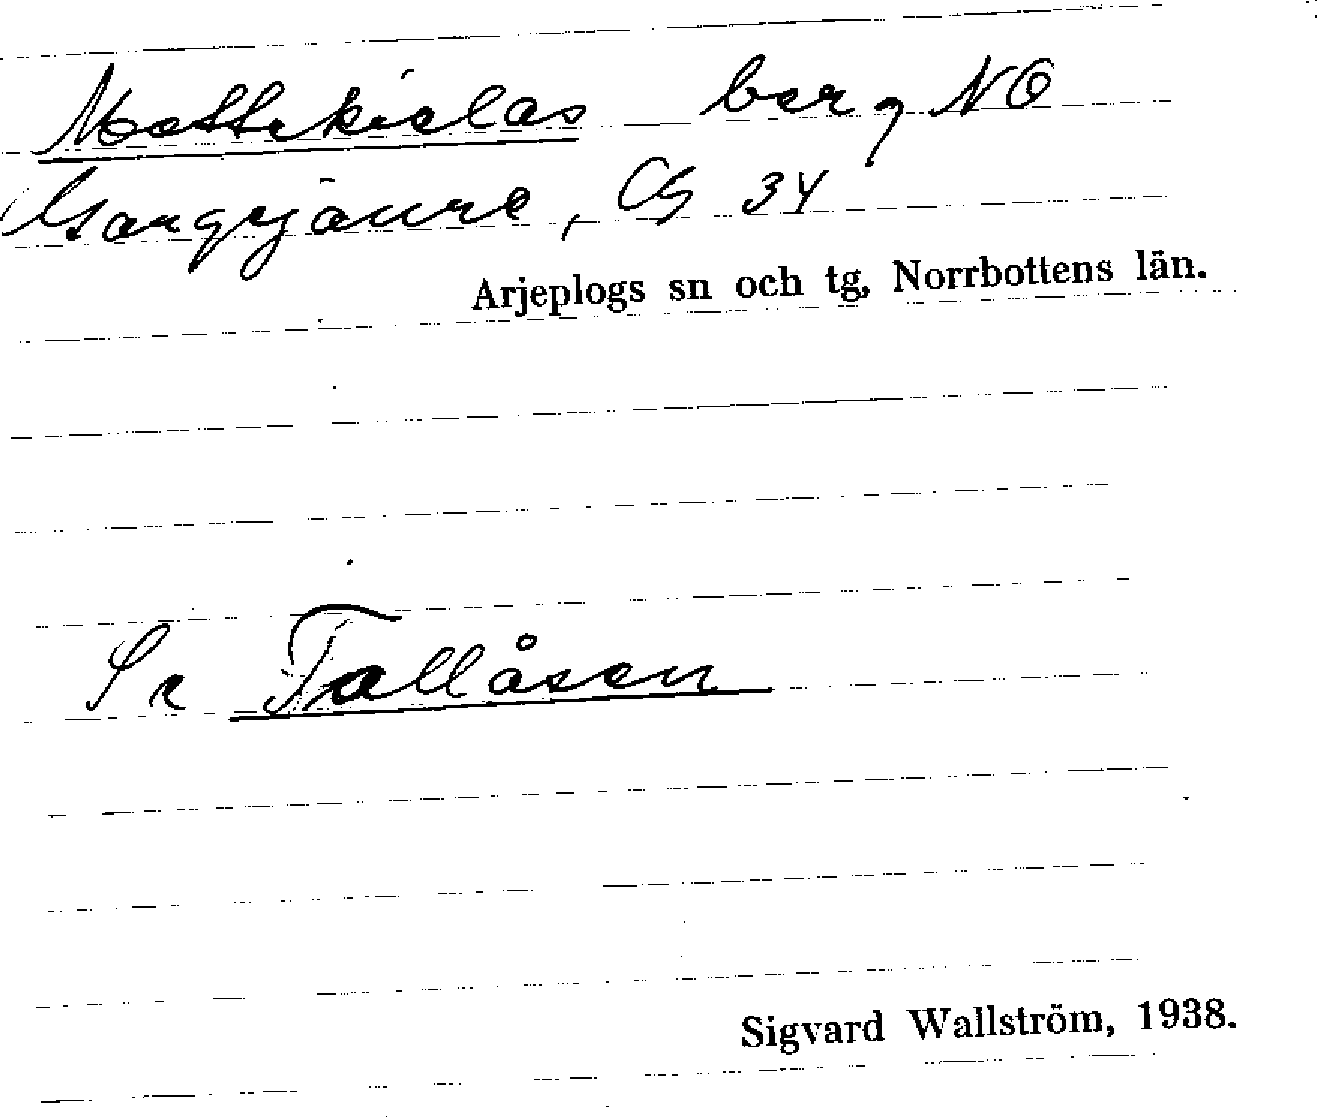 berg NO
, Cg 34
Arjeplogs sn och tg, Norrbottens län.
Se Tallåsen
Sigvard Wallström, 1938.